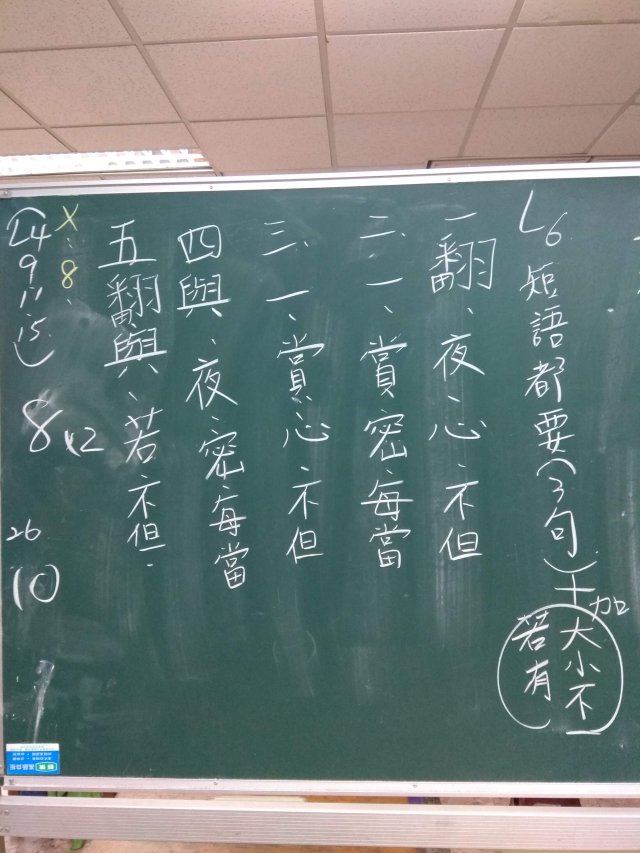 L6 短語都要(3句)十加
大小不一
若有
一翻、夜、心、不但
二、一、賞密、每當
三、一、賞、心、不但
四與、夜、密、每當
五翻與、若、不但
X、8、
(24
9
11
15)
8 x2
26
10